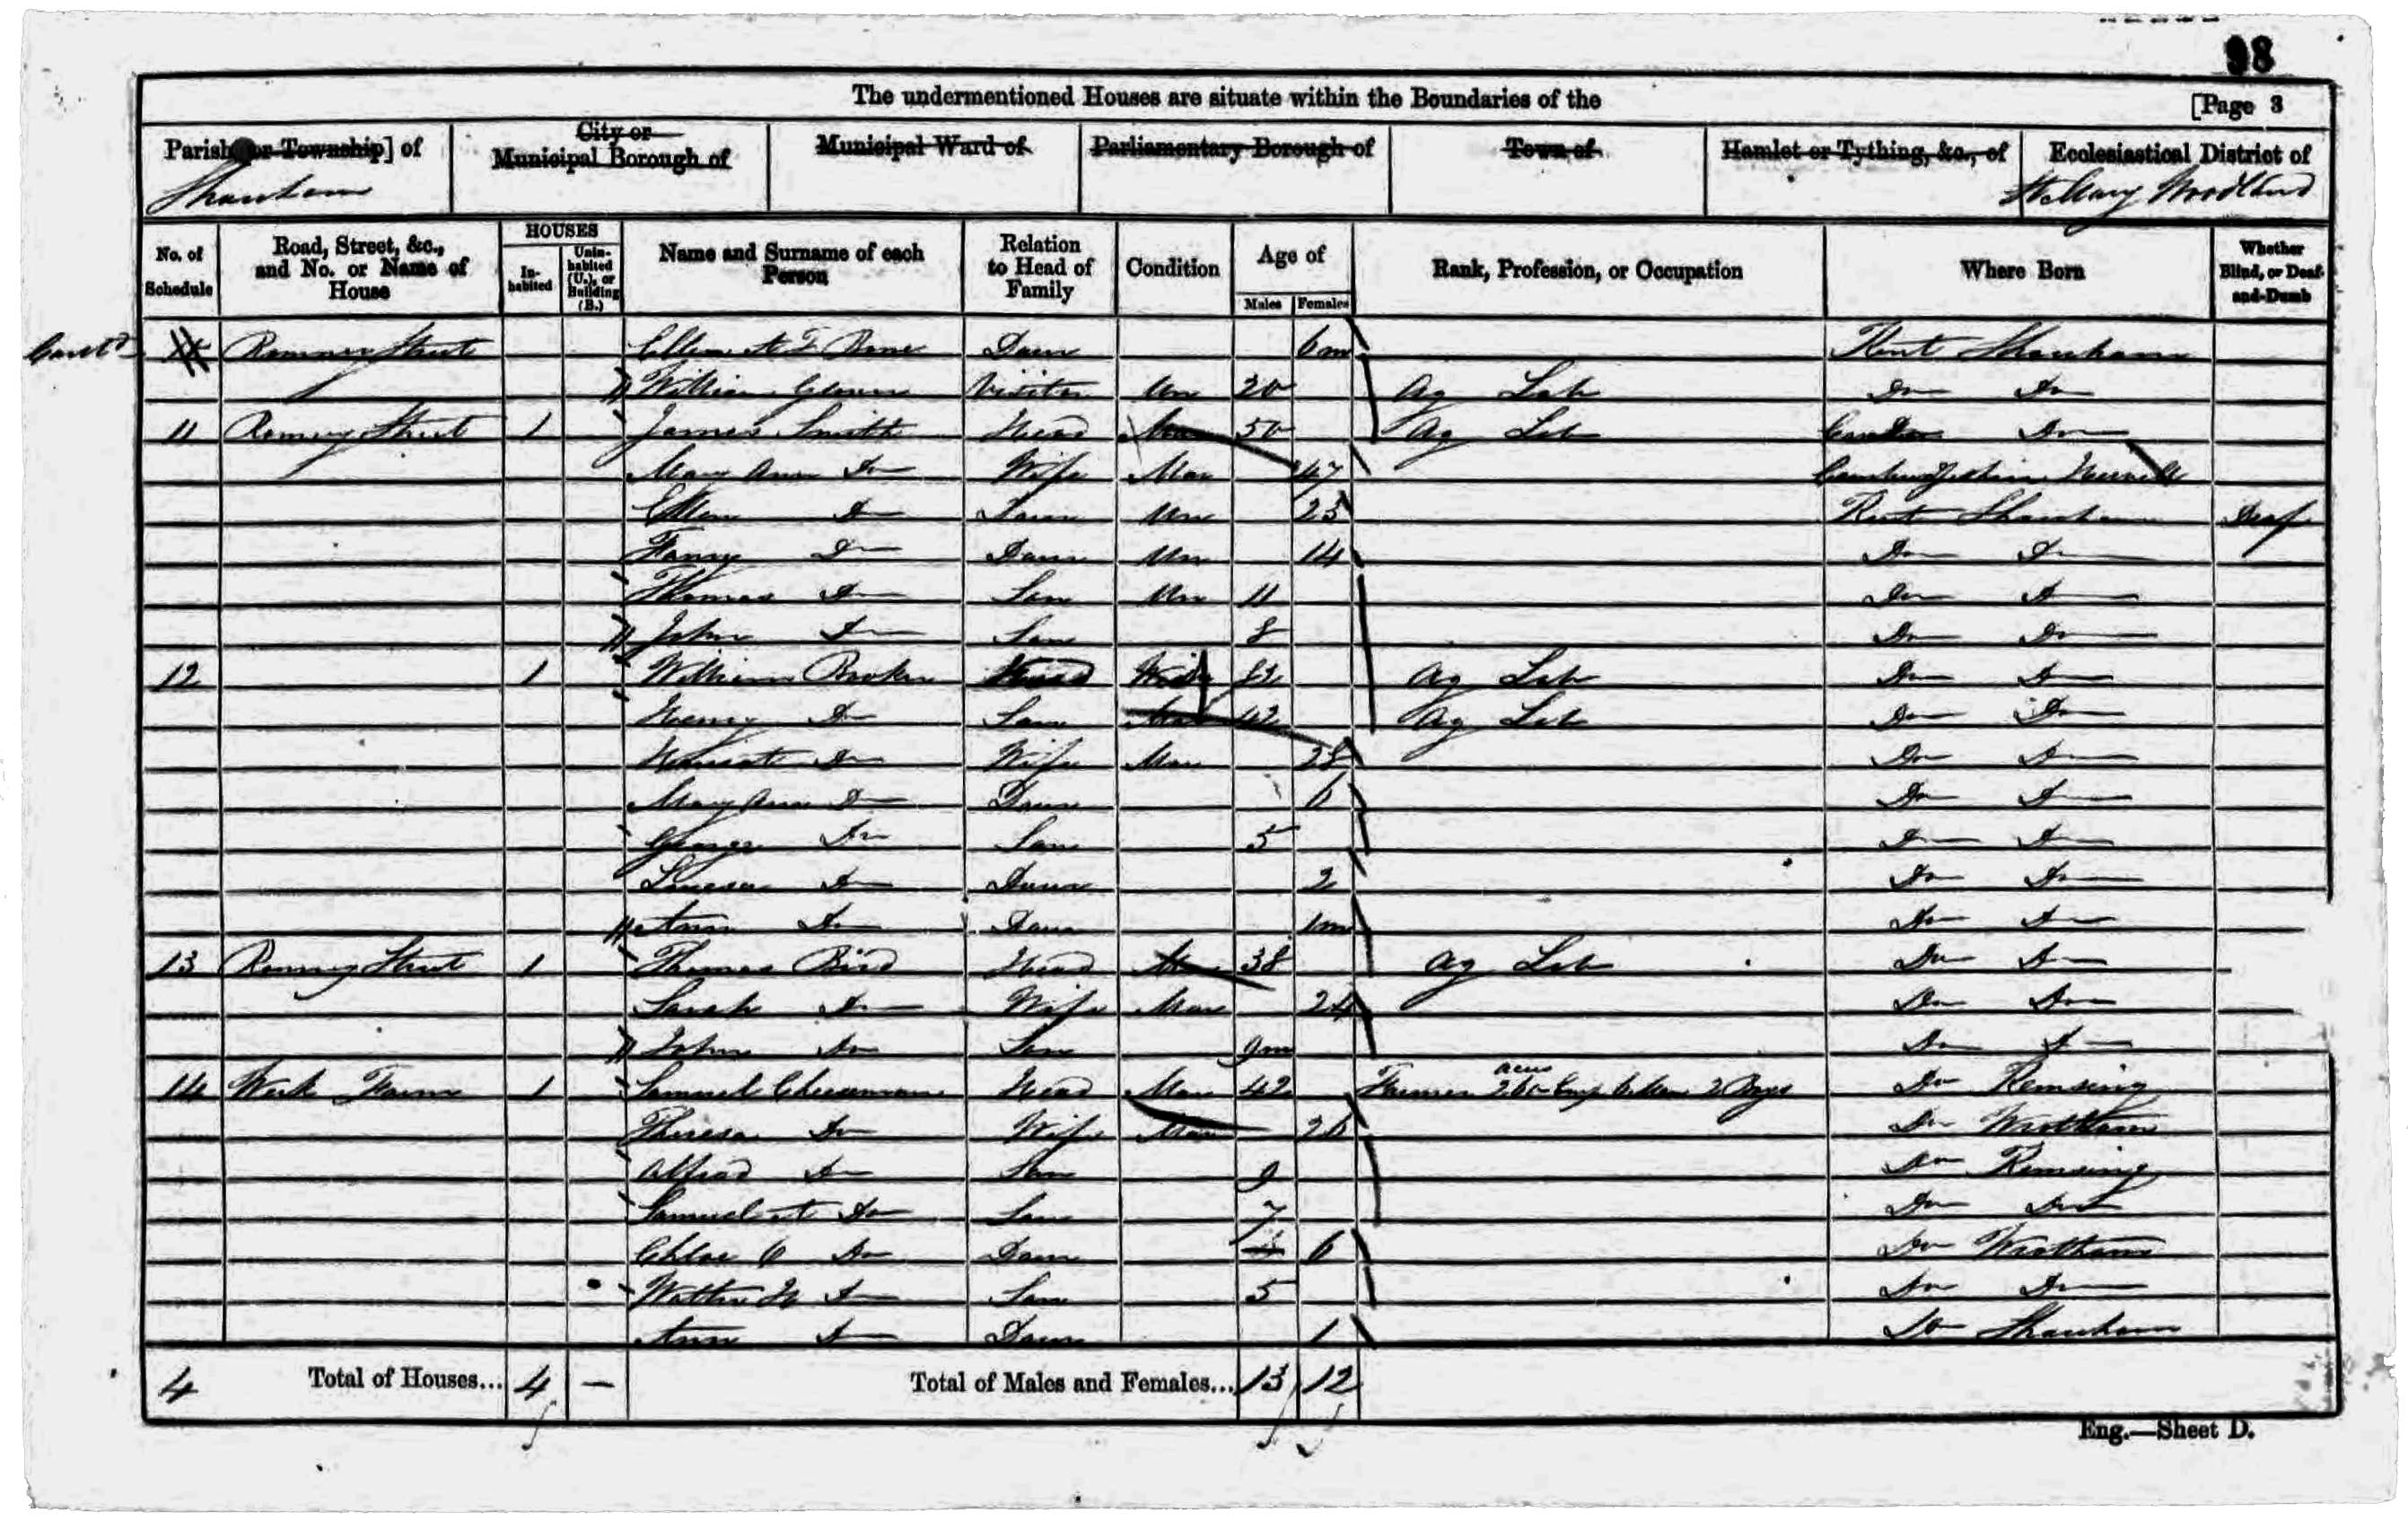 98
The undermentioned Houses are situate within the Boundaries of the [Page 3
Parish or Township] of City or Municipal Borough of Municipal Ward of Parliamentary Borough of Town of Hamlet or Tything, &c., of Ecclesiastical District of
Shoreham St Mary Woodland
No. of Schedule Road, Street, &c., and No. or Name of House HOUSES Inhabited Uninhabited (U.), or Building (B.) Name and Surname of each Person Relation to Head of Family Condition Age of Males Females Rank, Profession, or Occupation Where Born Whether Blind, or Deaf-and-Dumb
Street Daur 6m Kent Shoreham
William Visitor Un 20 Ag Lab Do Do
11 Romney Street 1 James Smith Head Mar 50 Ag Lab Do
Mary Ann Do Wife Mar 47
Ellen Do Daur Un 25 Kent Shoreham Deaf
Fanny Do Daur Un 14 Do Do
Thomas Do Son Un 11 Do Do
John Do Son 8 Do Do
12 1 William Head 82 Ag Lab Do Do
Henry Do Son Mar 42 Ag Lab Do Do
Do Wife Mar 28 Do Do
Mary Ann Do Daur 6 Do Do
George Do Son 5 Do Do
Do Daur 2 Do Do
Ann Do Daur 1m Do Do
13 Romney Street 1 Thomas Bird Head Mar 38 Ag Lab Do Do
Sarah Do Wife Mar 24 Do Do
John Do Son 9m Do Do
14 Farm 1 Samuel Cheeseman Head Mar 42 Farmer acres 6 Men 2 Boys Do Kemsing
Theresa Do Wife Mar Do Wrotham
Alfred Do Son 9 Do Kemsing
Samuel Do Son 7 Do Do
Chloe Do Daur 6 Do Wrotham
Walter Do Son 5 Do Do
Ann Do Daur 1 Do Shoreham
4 Total of Houses... 4 — Total of Males and Females... 13 12
Eng.—Sheet D.